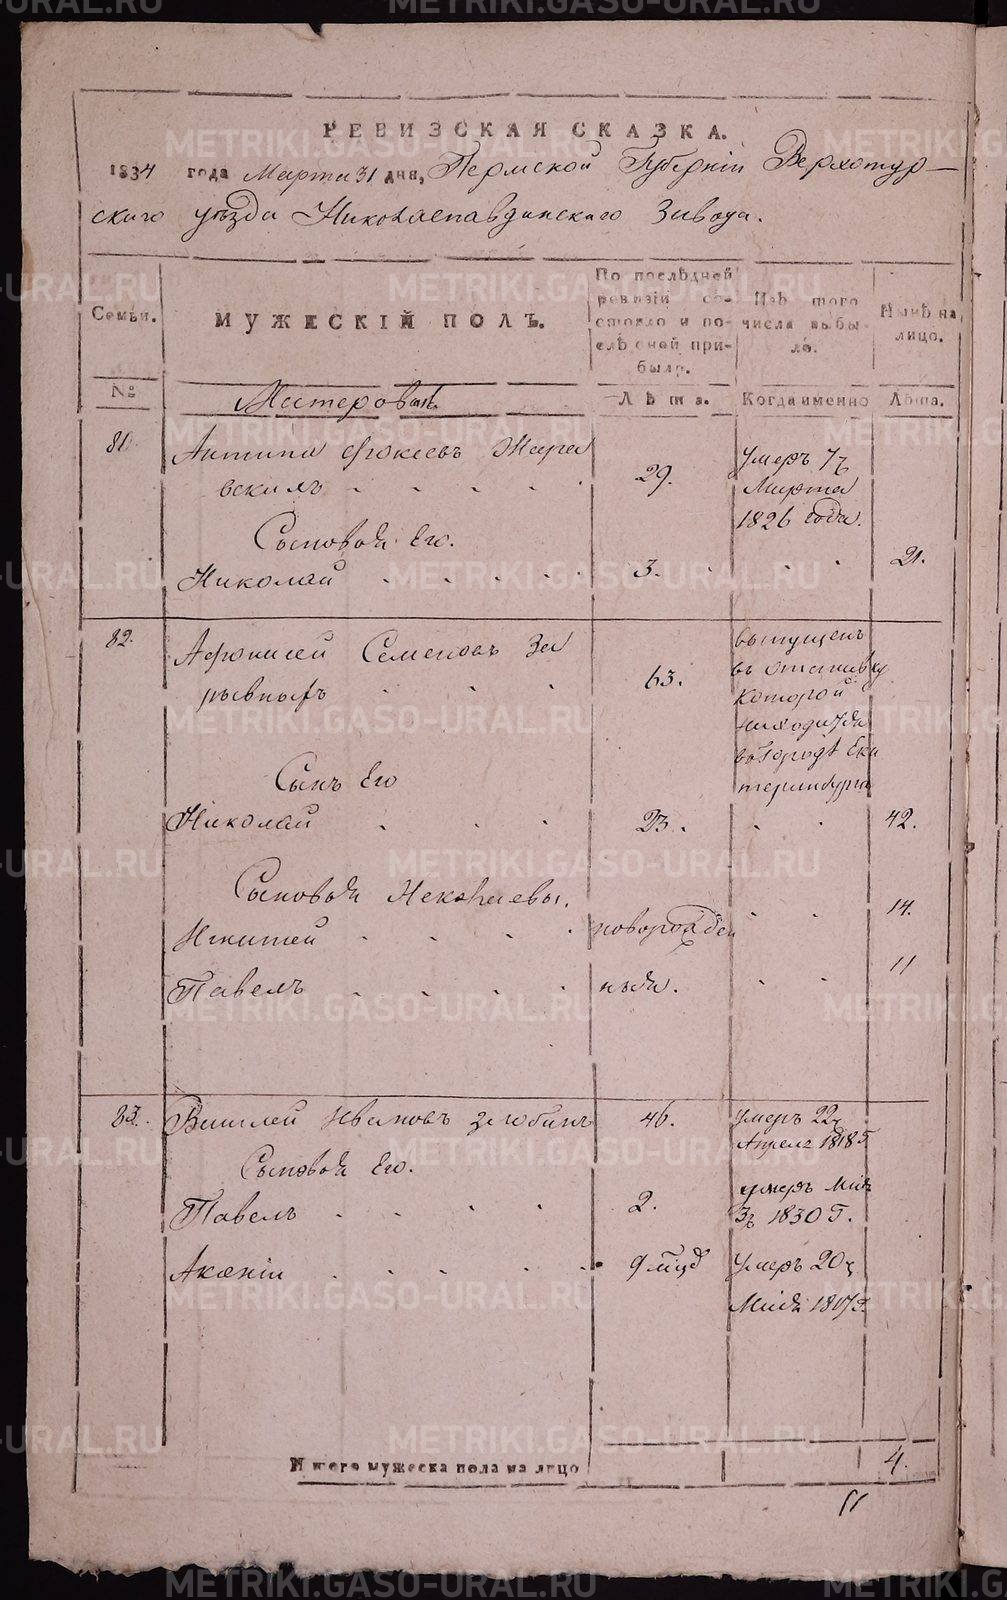 РЕВИЗСКАЯ СКАЗКА.
1834 года Марта 31 дня, Пермской Губернiи Верхотур-
скаго уѣзда Николаепавдинскаго Завода.
Семьи.
МУЖЕСКIЙ ПОЛЪ.
По послѣдней ревизiи состояло и послѣ оной прибыло.
Изъ того числа выбыло.
Нынѣ на лицо.
№
Мастеровые.
Лѣта.
Когда именно
Лѣта.
81.
Антипа Фокеевъ
29.
умеръ 7
Марта
1826 года.
Сыновья Его.
Николай
3.
21.
82.
Афонасей Семеновъ За
63.
выпущенъ
въ отставку
которой
находится
въ городѣ Ека
теринбурга
Сынъ Его
Николай
23.
42.
Сыновья Николаевы.
Никита
новорожден
14.
Павелъ
11
83.
Василей Ивановъ Злобинъ
46.
умеръ 22
Апреля 1818 Г
Сыновья Его.
Павелъ
2.
умеръ Мая
3 1830 Г.
9 мѣця
Умеръ 20
Мая 1817 Г.
Итого мужеска пола на лицо
4.
METRIKI.GASO-URAL.RU